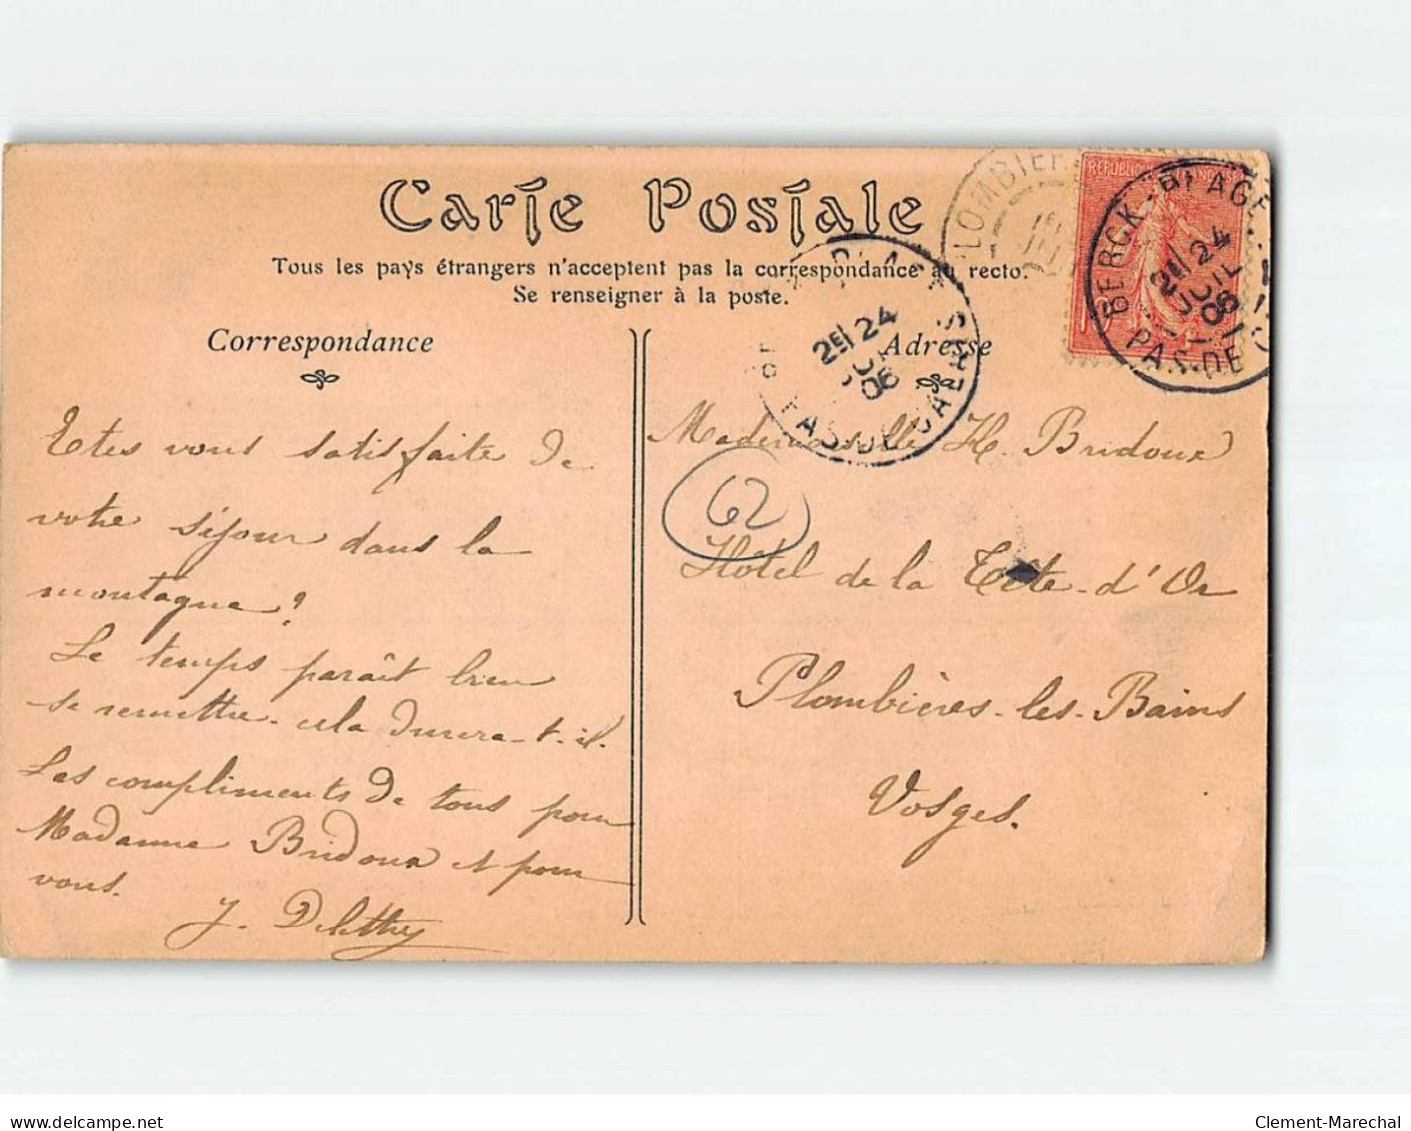 Carte Postale
Tous les pays étrangers n'acceptent pas la correspondance au recto.
Se renseigner à la poste.
Correspondance
Etes vous satisfaite de
votre séjour dans la
montagne?
Le temps paraît bien
se remettre - cela durera-t-il.
Les compliments de tous pour
Madame Bridoux et pour
vous.
J. Delethy
Adresse
Mademoiselle H. Bridoux
62
Hôtel de la Tête-d'Or
Plombières-les-Bains
Vosges.
PLOMBIER
REPUBLIQUE
BERCK-PLAGE
2E/24
JUIL
06
PAS-DE-C
PLAGE
2E/24
06
PAS-DE-CALAIS
delcampe.net
Clement-Marechal